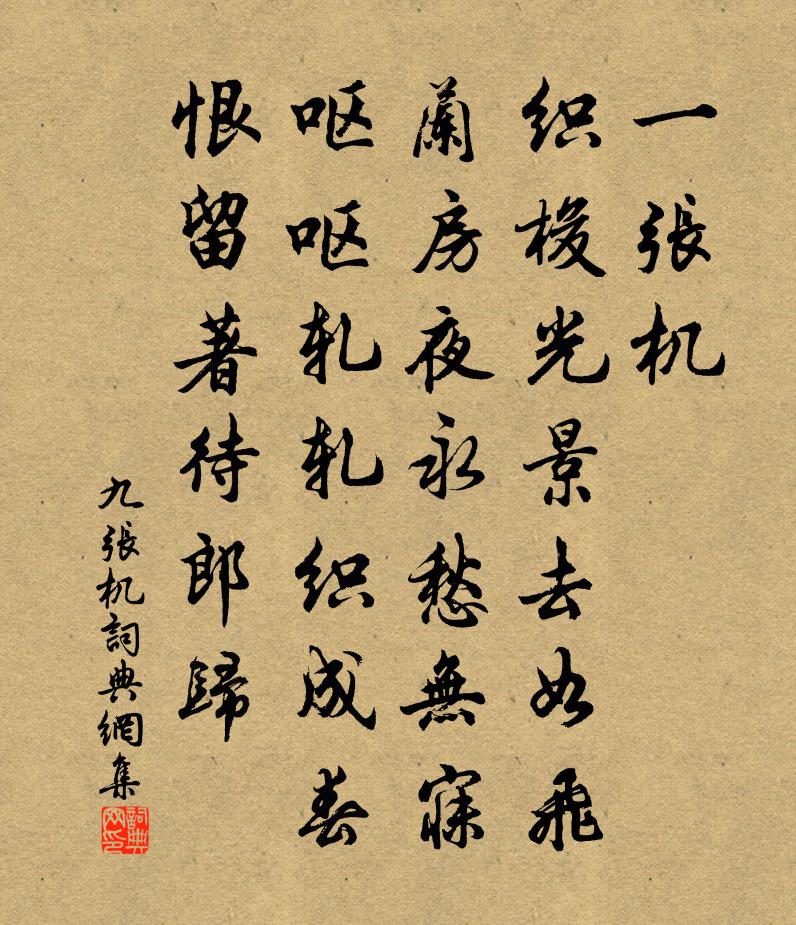 一張机
织梭光景去如飛
蘭房夜永愁無寐
呕呕轧轧织成春
恨留著待郎歸
九張机詞典網集
詞典网印